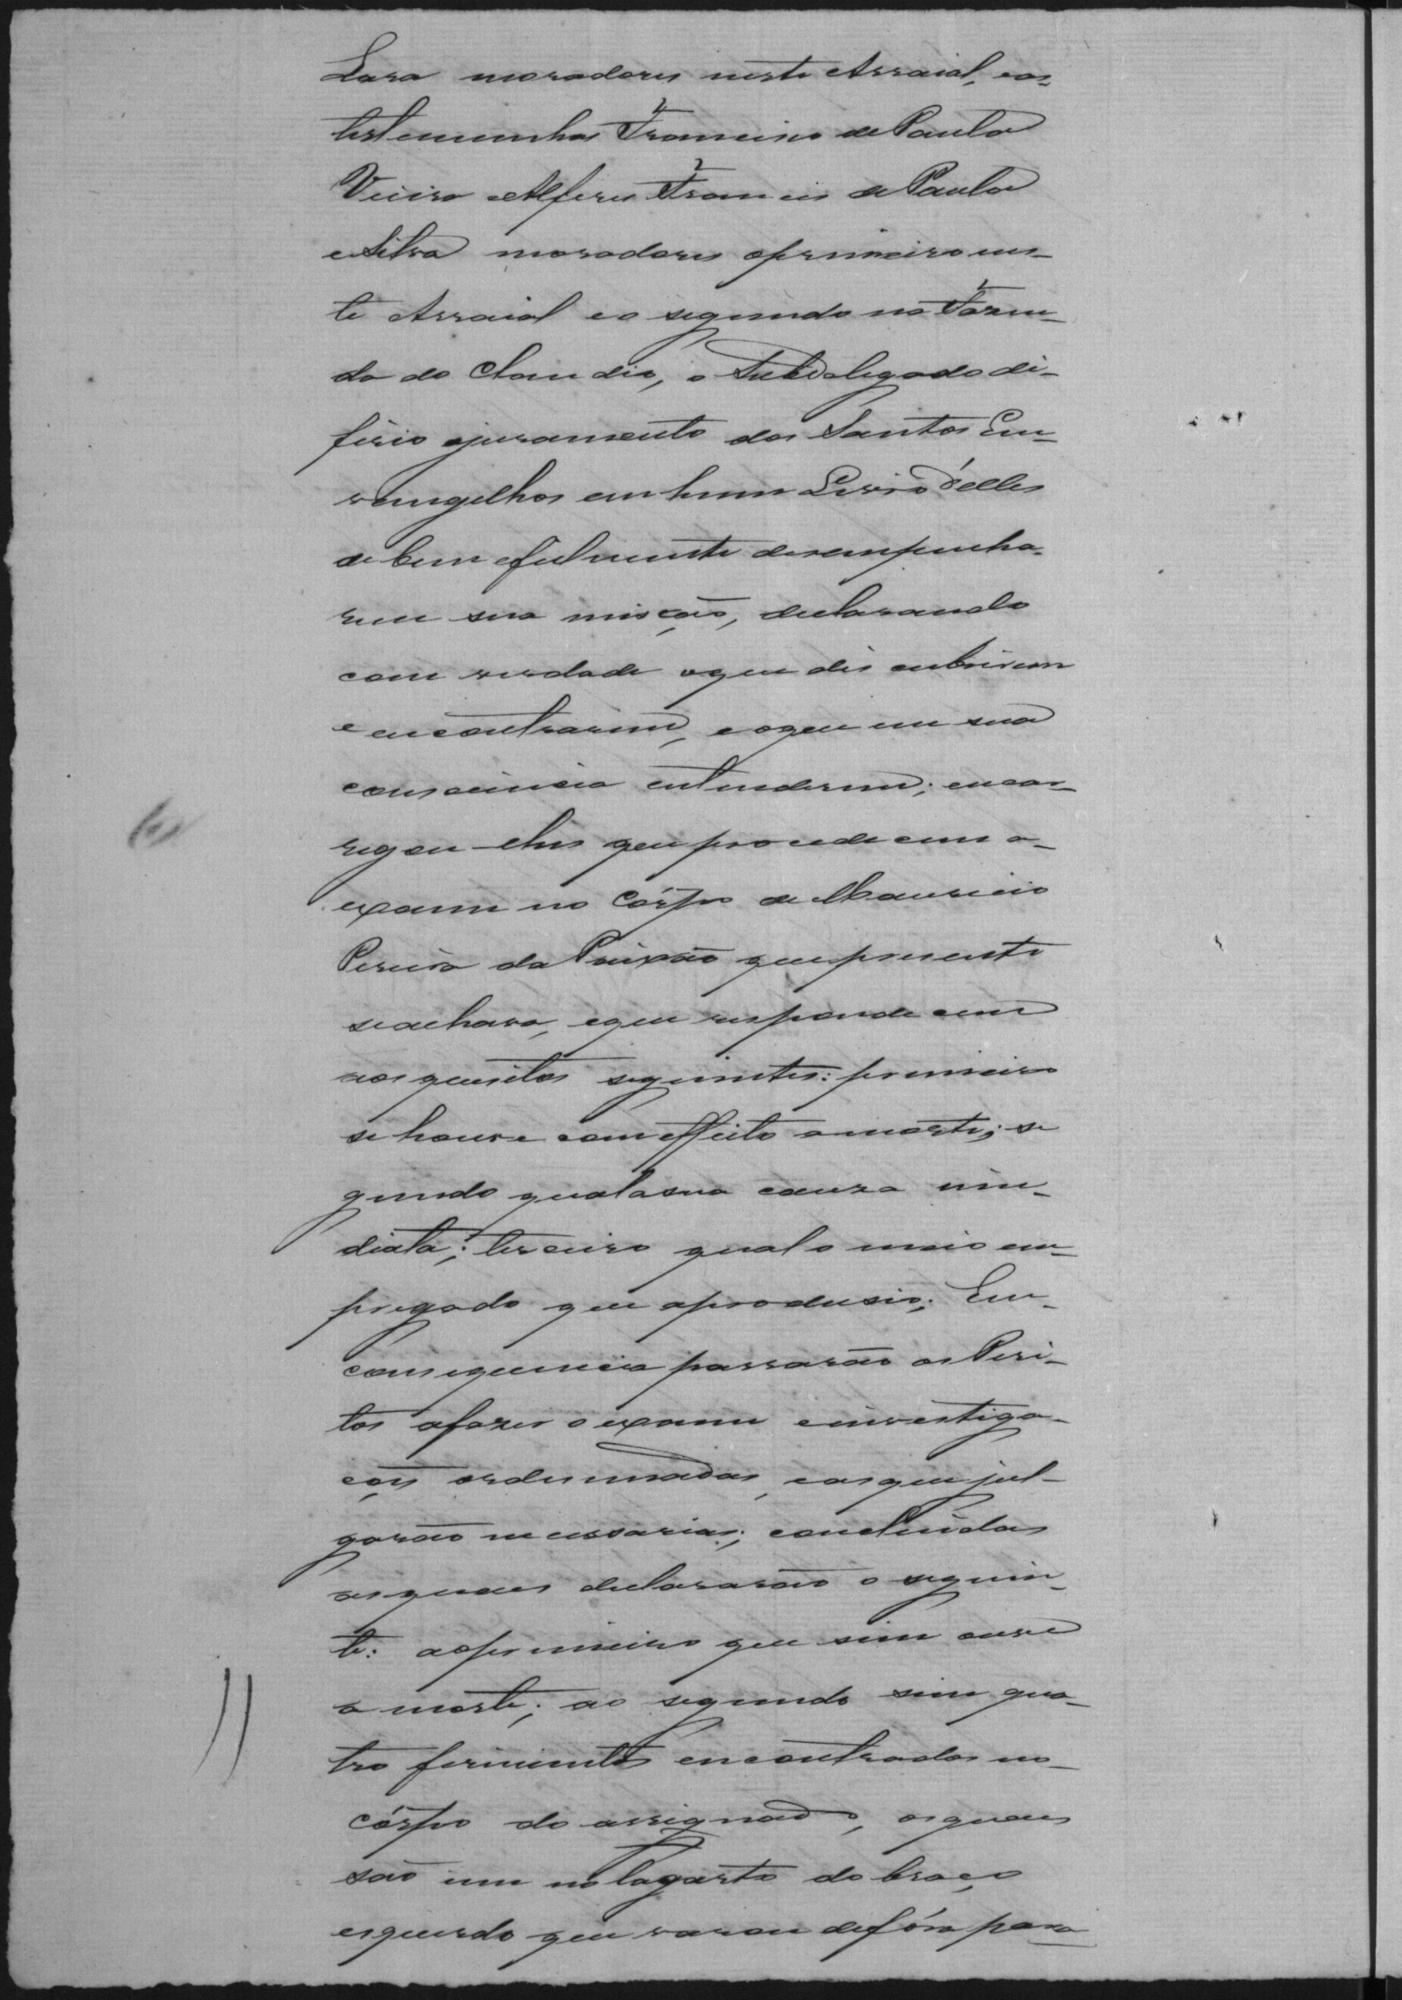 Lara moradores neste Arraial, eas
testemunhas Francisco de Paula
Vieira e Alferes Francisco de Paula
e Silva moradores oprimeiro nes-
te Arraial eo segundo na Fazen-
da do Claudio, o Subdelegado di-
ferio ojuramento dos Santos Em-
vangelhos em hum Livro d'elles
de bem efielmente desempenha-
rem sua misção, declarando
com verdade oque discubrirem
e encontrarem, eoque em sua
consciencia entenderem; encar-
regou-lhes que procedecem a-
exame no Córpo de Mauricio
Pereira da Paixão que presente
se achava, eque respondecem
aos quesitos seguintes: primeiro
se houve com effeito a morte; se
gundo qual a sua cauzaime-
diata; terceiro qual o meio em-
pregado que aprodusio; Em-
consequencia passarão os Peri-
tos afazer o exame einvestiga-
çoẽs ordennadas, easque jul-
garão necessarias; concluidas
asquaes declararão o seguin-
te: aoprimeiro que sim ouve
a morte; ao segundo sim qua-
tro ferimentos encontrados no-
córpo do assignado, osquaes
são um no lagarto do braço
esquerdo que varou defóra para